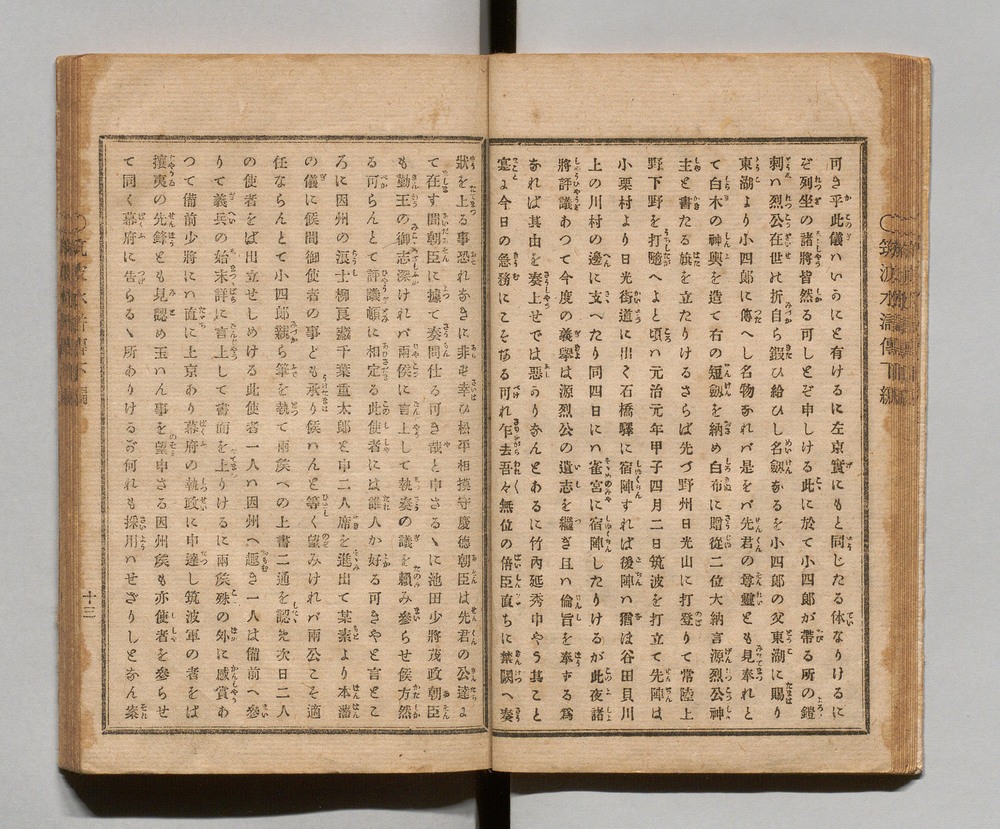 可き乎此儀ハいかにと有けるに左京實にもと同じたる体なりけるに
ぞ列坐の諸將皆然る可しとぞ申しける此に於て小四郎が帶る所の鎧
刺ハ烈公在世に折自ら鍜ひ給ひし名劔あるを小四郎の父東湖に賜り
東湖より小四郎に傳へし名物あれバ是をバ先君の尊靈とも見奉れと
て白木の神輿を造て右の短劔を納め白布に贈從二位大納言源烈公神
主と書たる旗を立たりけるさらば先づ野州日光山に打登りて常陸上
野下野を打隨へよと頃ハ元治元年甲子四月二日筑波を打立て先陣は
小栗村より日光街道に出く石橋驛に宿陣すれば後陣ハ猶は谷田貝川
上の川村の邊に支へたり同四日にハ雀宮に宿陣したりけるが此夜諸
將評議あつて今度の義擧は源烈公の遺志を繼ぎ且ハ倫旨を奉する爲
あれば其由を奏上せでは惡かりあんとあるに竹內延秀申やう其こと
寔よ今日の急務にこそある可れ乍去吾々無位の倍臣直ちに禁闕へ奏
狀を上る事恐れあきに非も幸ひ松平相摸守慶德朝臣は先君の公達よ
て在す間朝臣に據て奏問仕る可き哉と申さるゝに池田少將茂政朝臣
も勤王の御志深けれバ兩侯に言上して執奏の議を賴み參らせ候方然
る可らんとて評議頓に相定る此使者にハ誰人か好る可きやと言とこ
ろに因州の浪士柳良藏千葉重太郎と申二人席を進出て某素より本藩
の儀に候間御使者の事ども承り候ハんと等く望みけれバ兩公こそ適
任ならんとて小四郎親ら筆を執て兩矦への上書二通を認め次日二人
の使者をば出立せしめける此使者一人ハ因州へ趣き一人は備前へ參
りて義兵の始末詳に言上して書面を上りけるに兩矦殊の外に感賞あ
つて備前少將にハ直に上京あり幕府の執政に申達し筑波軍の者をば
攘夷の先鋒とも見認め玉ハん事を望申さる因州矦も亦使者を參らせ
て同く幕府に告らるゝ所ありけるが何れも採用ハせざりしとあん素
十三